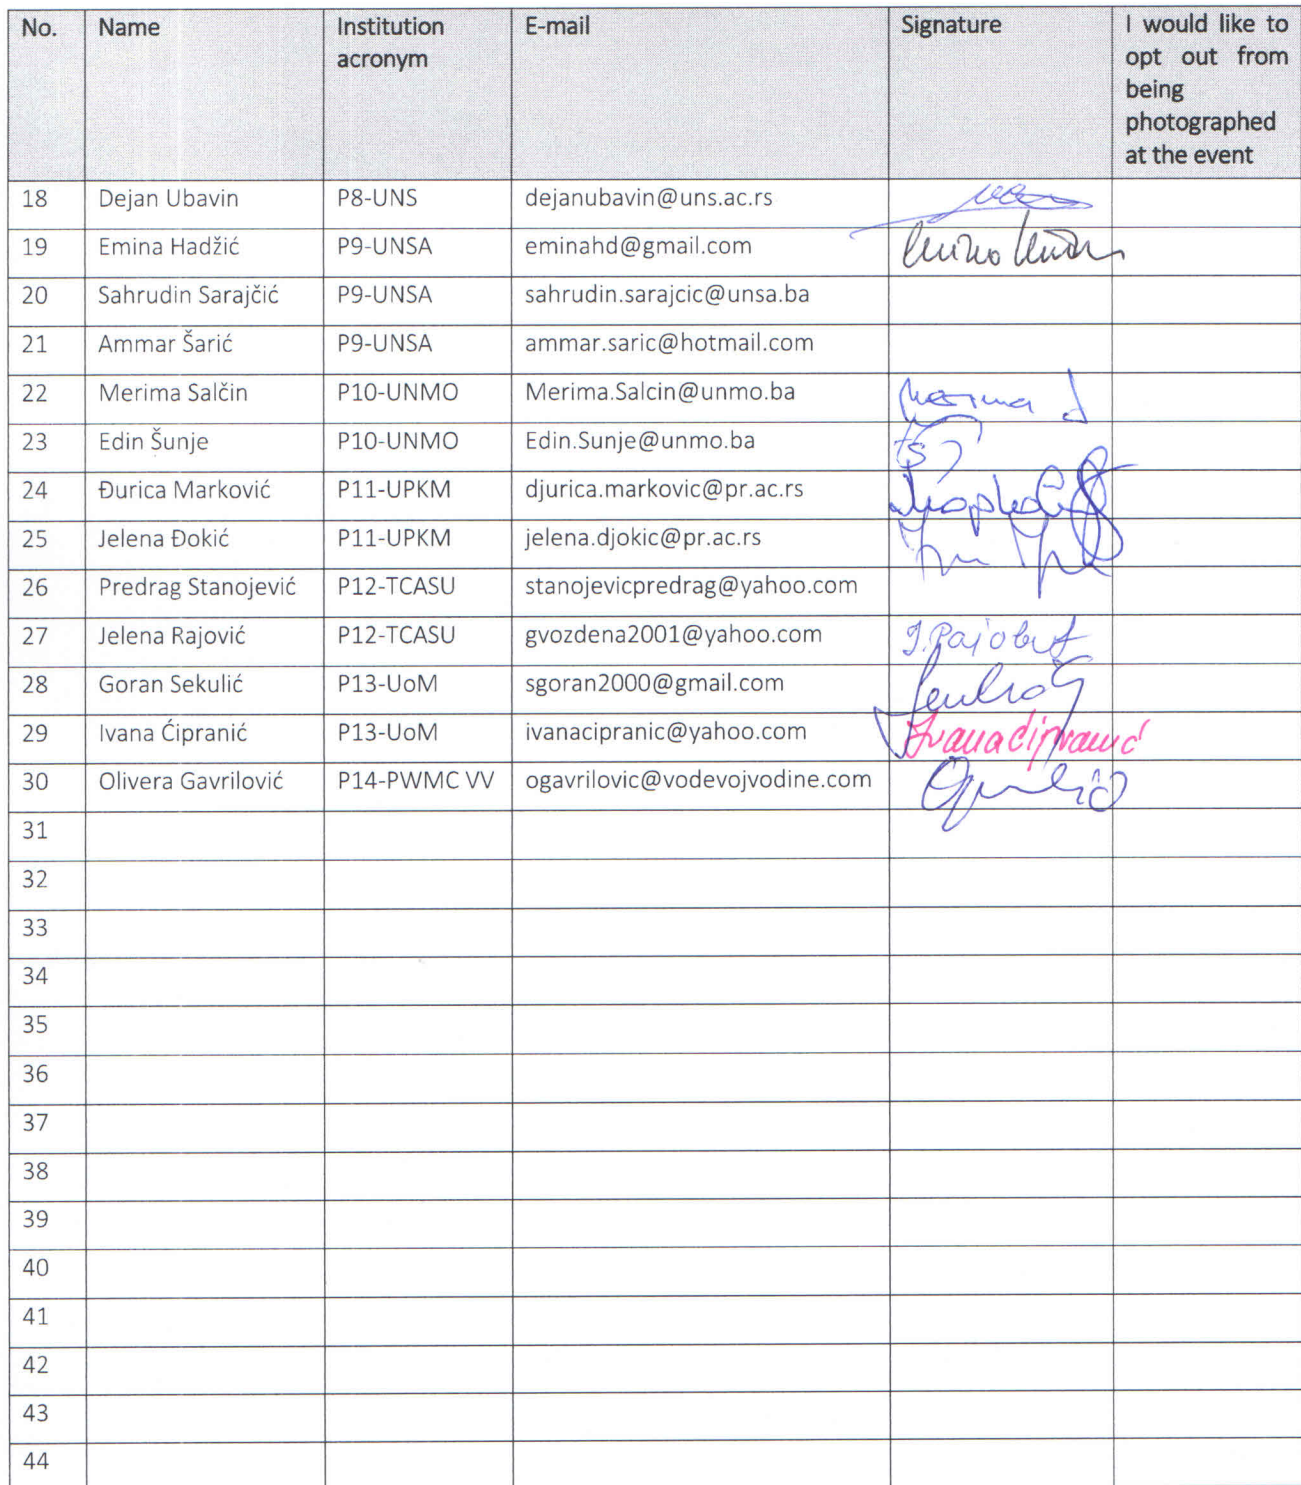 No. Name Institution acronym E-mail Signature I would like to opt out from being photographed at the event
18 Dejan Ubavin P8-UNS dejanubavin@uns.ac.rs
19 Emina Hadžić P9-UNSA eminahd@gmail.com
20 Sahrudin Sarajčić P9-UNSA sahrudin.sarajcic@unsa.ba
21 Ammar Šarić P9-UNSA ammar.saric@hotmail.com
22 Merima Salčin P10-UNMO Merima.Salcin@unmo.ba Merima S
23 Edin Šunje P10-UNMO Edin.Sunje@unmo.ba
24 Đurica Marković P11-UPKM djurica.markovic@pr.ac.rs
25 Jelena Đokić P11-UPKM jelena.djokic@pr.ac.rs
26 Predrag Stanojević P12-TCASU stanojevicpredrag@yahoo.com
27 Jelena Rajović P12-TCASU gvozdena2001@yahoo.com
28 Goran Sekulić P13-UoM sgoran2000@gmail.com
29 Ivana Ćipranić P13-UoM ivanacipranic@yahoo.com Ivana Ćipranić
30 Olivera Gavrilović P14-PWMC VV ogavrilovic@vodevojvodine.com
31
32
33
34
35
36
37
38
39
40
41
42
43
44